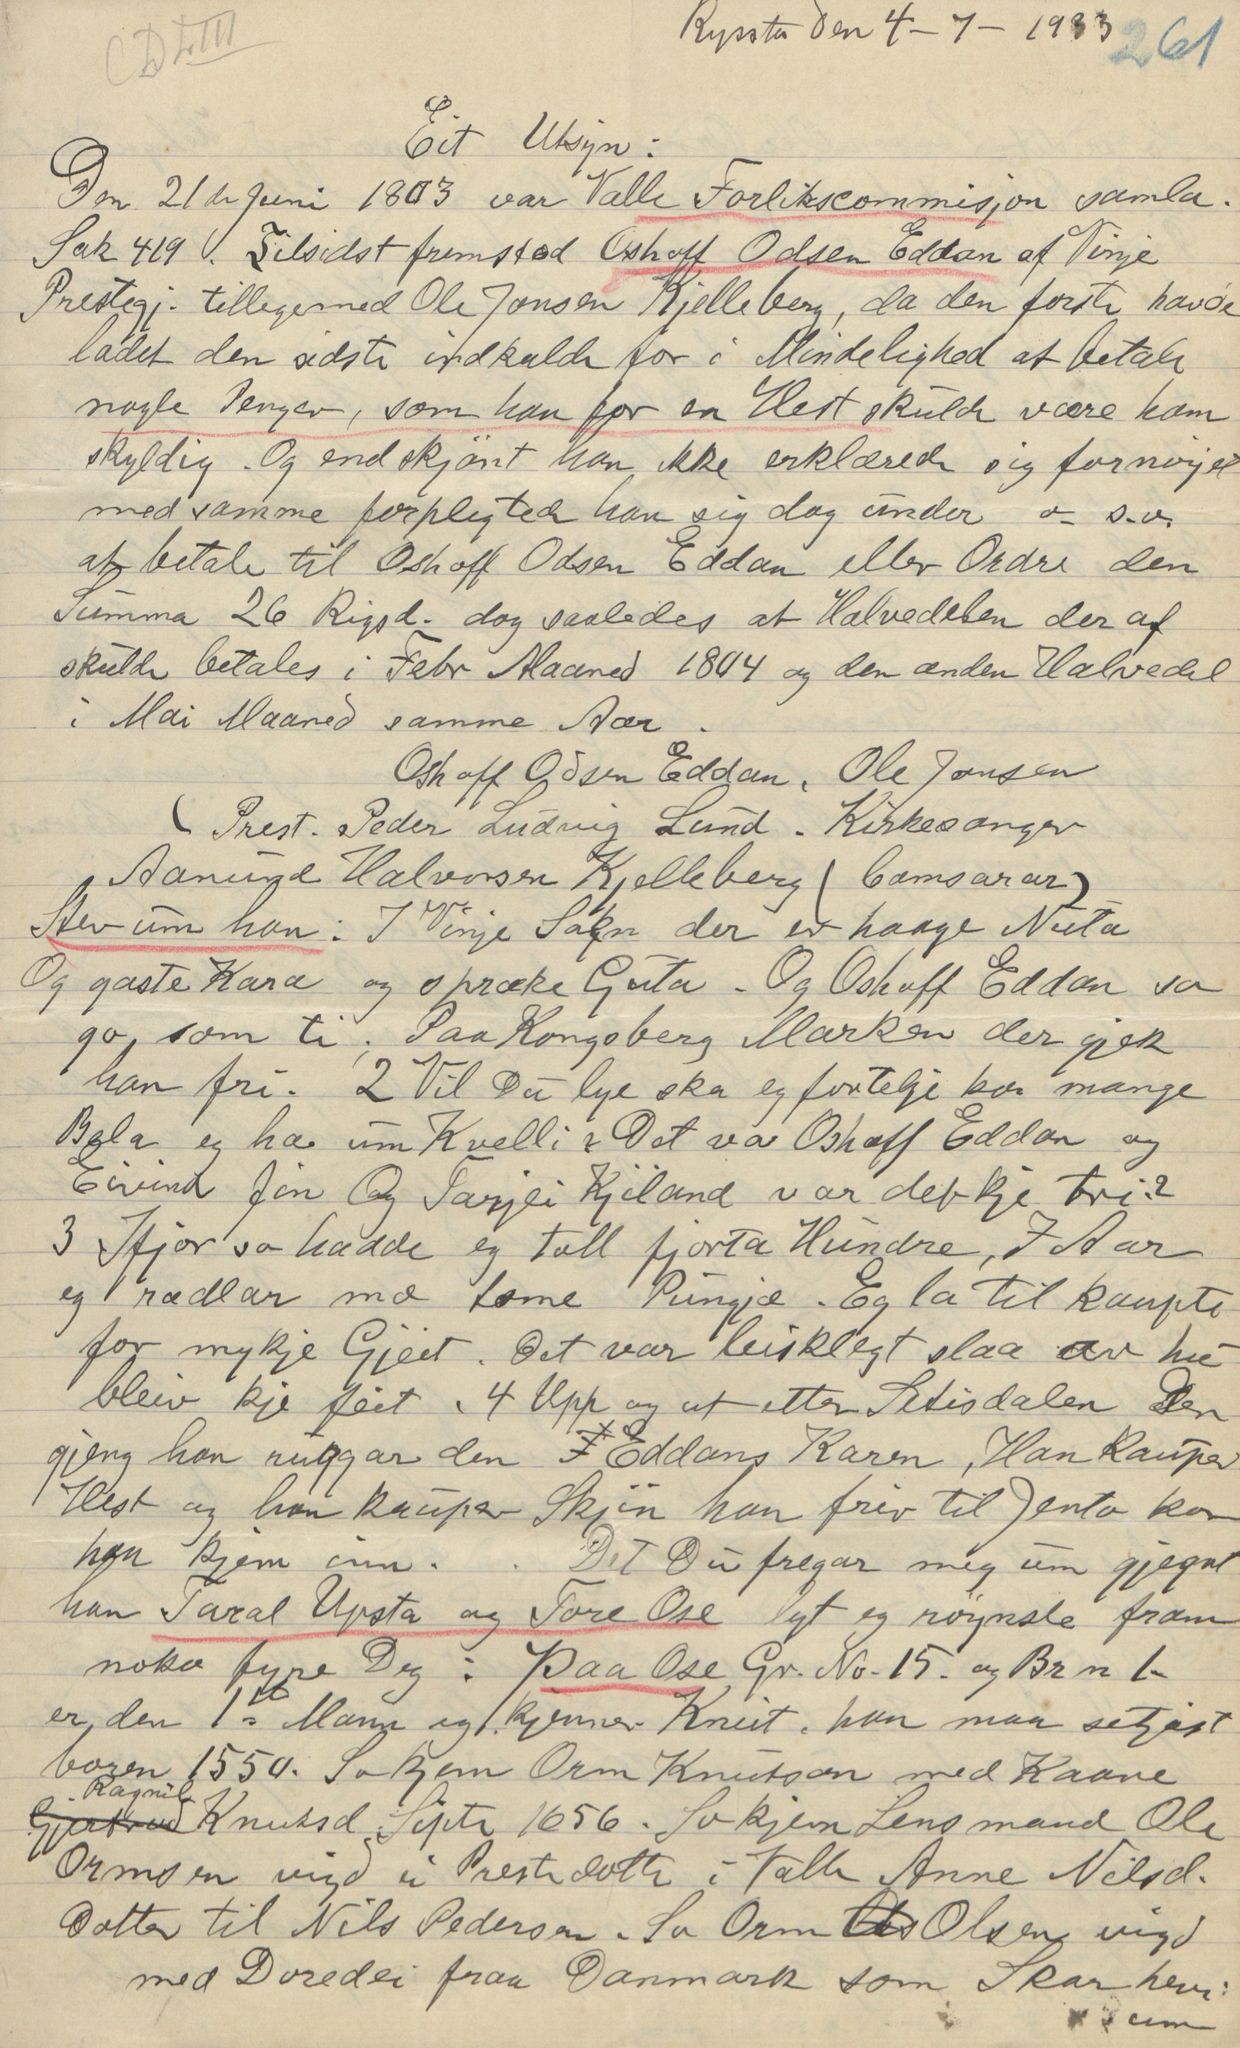 Rysstad den 4-7-1933 261
CDLIII
Eit Utsyn:
Den 21de Juni 1803 var Valle Forlikscommisjon samla.
Sak 419. Tilsidst fremstod Oshoff Odsen Eddan af Vinje
Prestegj. tilligemed Ole Jonsen Kjelleberg, da den første havde
ladet den sidste indkalde for i Mindelighed at betale
nogle Penger, som han for en Hest skulde være ham
skyldig. Og endskjönt han ikke erklærede sig fornöjet
med samme forpligtede han sig dog under o. s. v.
at betale til Oshoff Odsen Eddan eller Ordre den
Summa 26 Rigsd. dog saaledes at Halvedelen der af
skulde betales i Febr Maaned 1804 og den anden Halvedel
i Mai Maaned samme Aar.
Oshoff Odsen Eddan. Ole Jonsen
(Prest. Peder Ludvig Lund. Kirkesanger
Aanund Halvorsen Kjelleberg (Comsarar)
Stev um han: I Vinje Sokn der er haage Nuta
Og gaste Kara og spræke Guta. Og Oshoff Eddan sa
go, som ti, Paa Kongsberg Marken der gjek
han fri. 2 Vil Du lye ska eg fortelje ko mange
Bela eg ha um Kvelli? Det va Oshoff Eddan og
Eivind Jin Og Tarjei Kjiland var det kje tri?
3 Ifjor so hadde eg toll fjorta Hundre, I Aar
eg rædlar mæ tome Pungjæ. Eg la til kaupte
for mykje Gjeit. Det var leisklegt slaa av hu
bleiv kje feit. 4 Upp og ut etter Setisdalen Den
gjeng han ruggar den Eddans Karen, Han Kauper
Hest og han kauper Skjin han friv til Jento kor
han kjem inn. Det Du fregar meg um gjegnt
han Taral Upsta og Tore Ose lyt eg röynste fram
noko fyre Deg: Paa Ose Gr. No. 15. og Br n 1.
er den 1ste Mann eg kjenner Knut. han maa setjast
boren 1550. So kjem Orm Knutson med Kaane
Ragnil
Gjertrud Knutsd Sept 1656. So kjem Lensmand Ole
Ormsen vigd ei Prestedotte i Valle Anne Nilsd.
Dotter til Nils Pedersen. So Orm Olsen vigd
med Doredei fraa Danmark som Skar hevi:
um